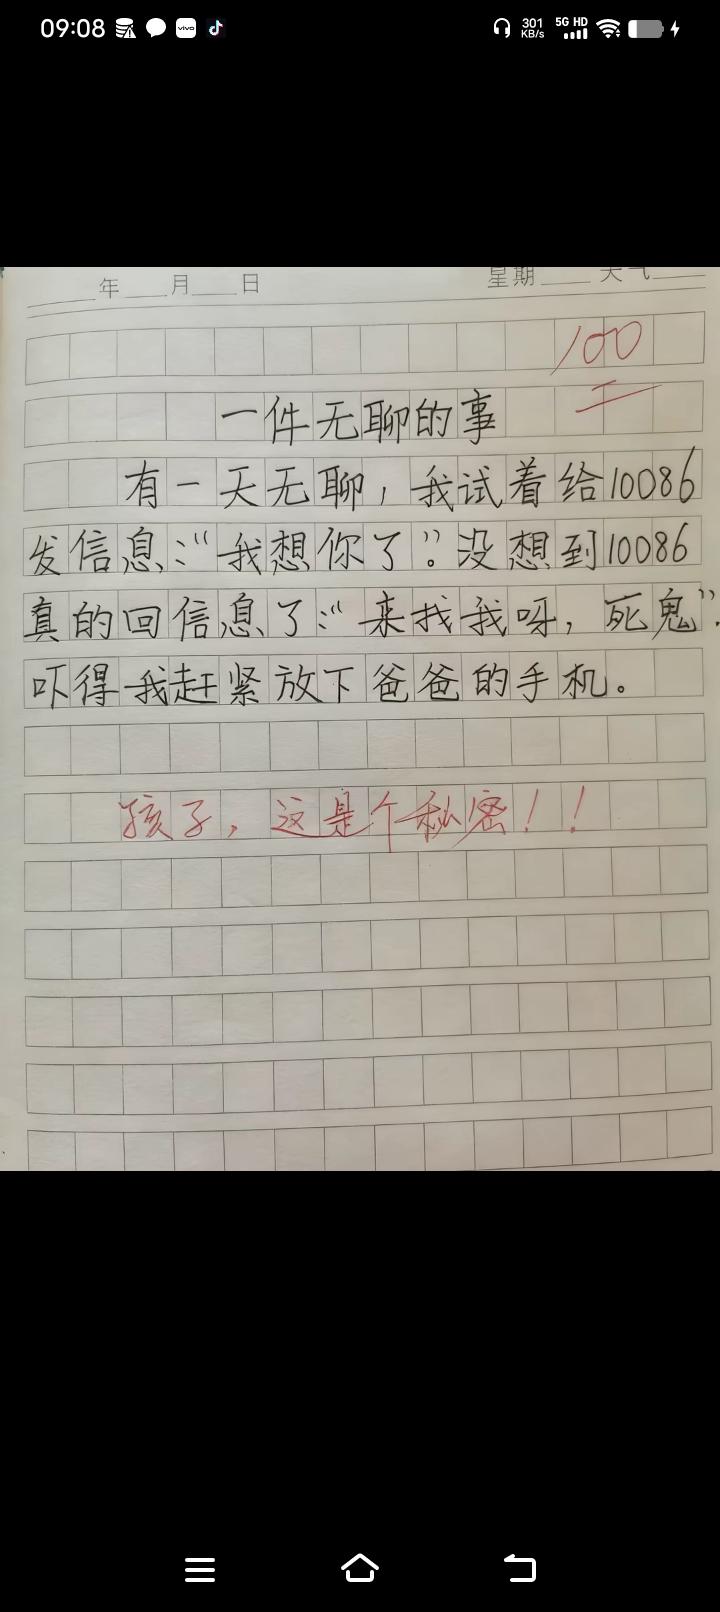 09:08
vivo
301
KB/s
5G HD
年 月 日 星期 天气
100
一件无聊的事
有一天无聊，我试着给10086
发信息：“我想你了”。没想到10086
真的回信息了：“来找我呀，死鬼”.
吓得我赶紧放下爸爸的手机。
孩子，这是个秘密！！